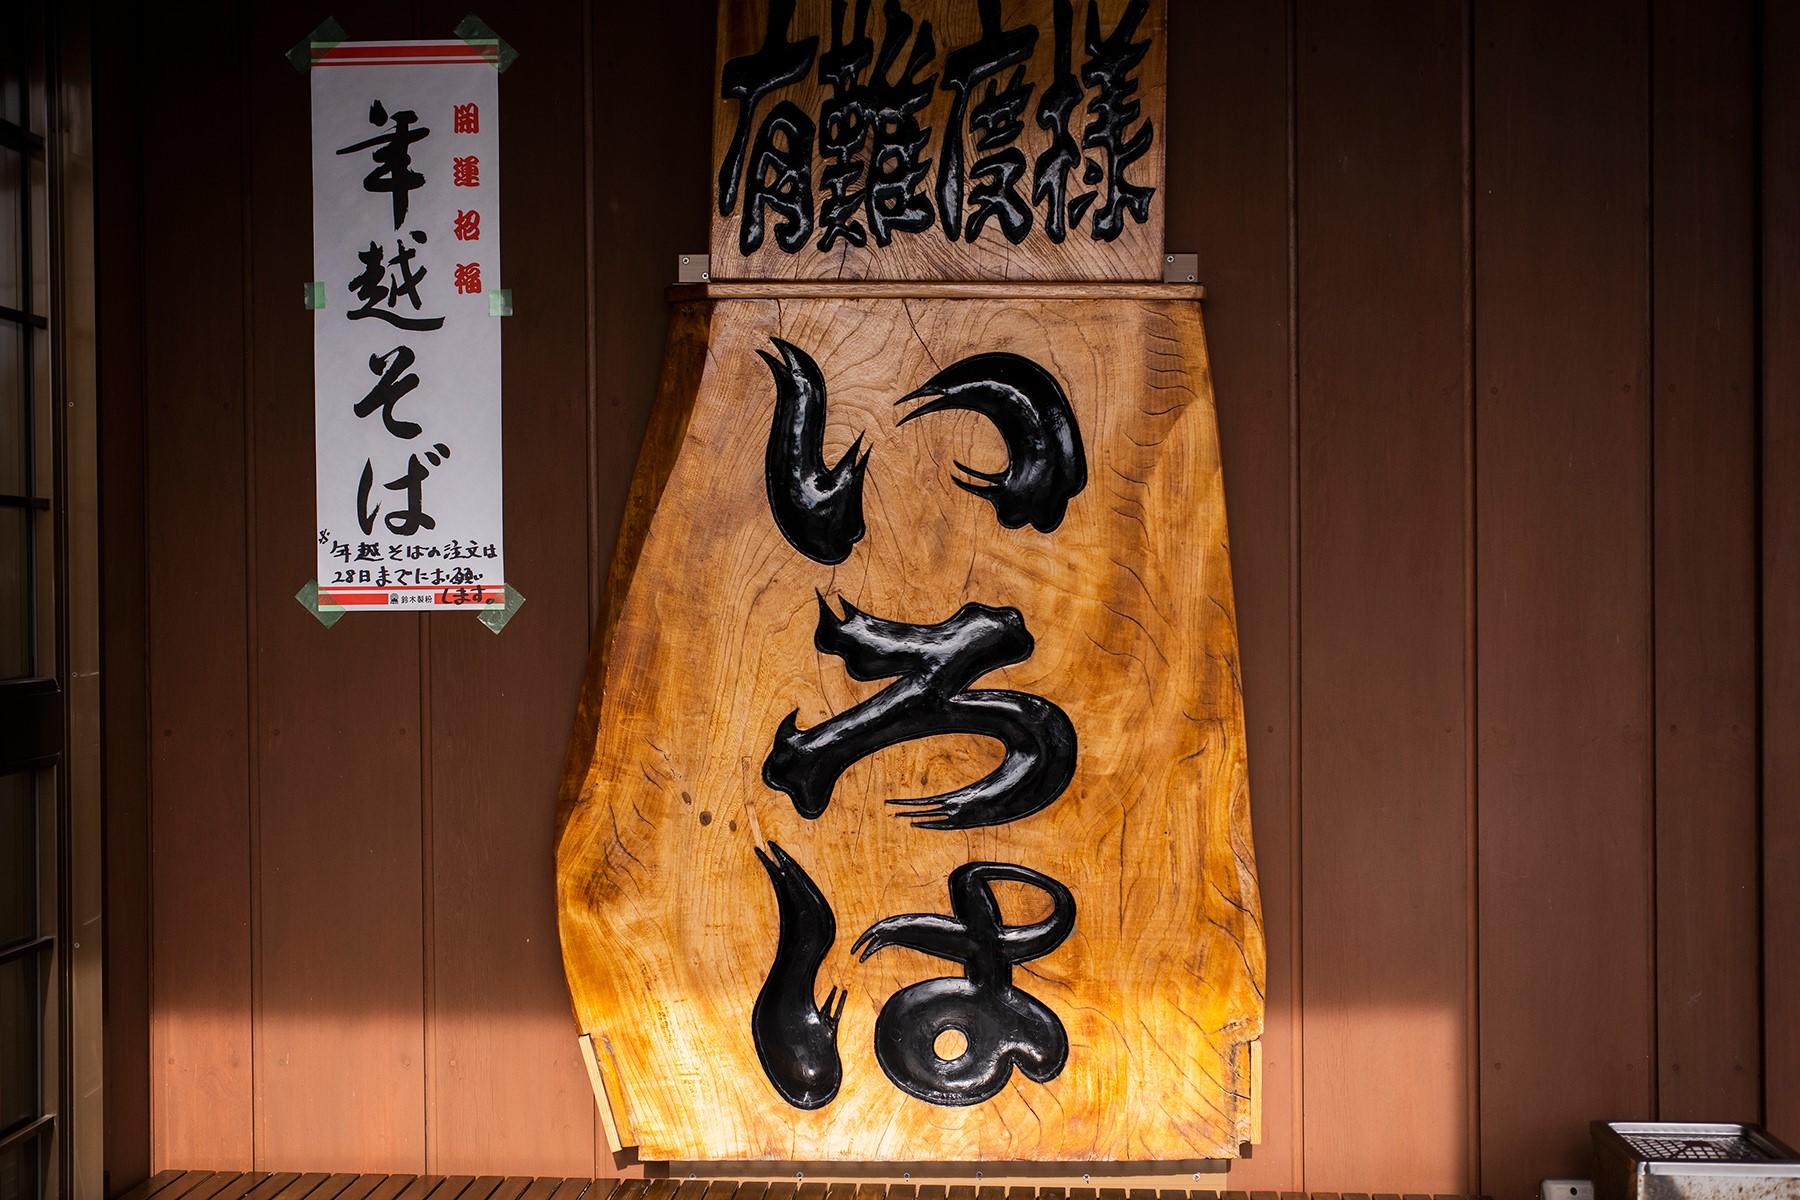 開運招福
年越そば
※年越そばの注文は
28日までにお願い
します。
鈴木製粉
有難度様
いろは